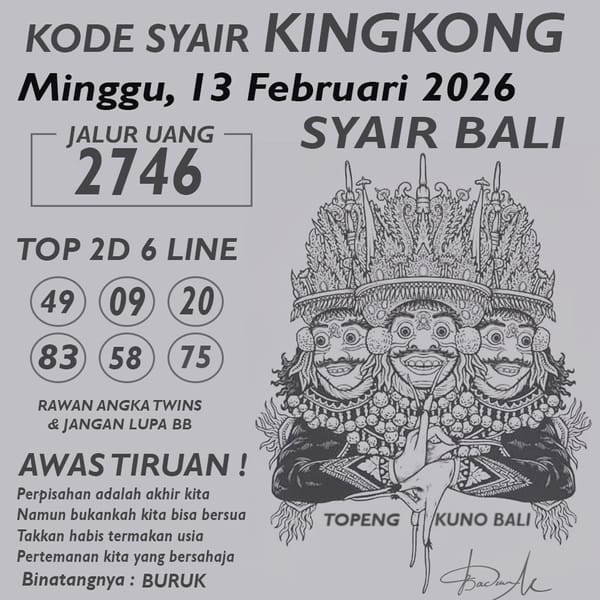 KODE SYAIR KINGKONG
Minggu, 13 Februari 2026
JALUR UANG
2746
SYAIR BALI
TOP 2D 6 LINE
49 09 20
83 58 75
RAWAN ANGKA TWINS
& JANGAN LUPA BB
AWAS TIRUAN !
Perpisahan adalah akhir kita
Namun bukankah kita bisa bersua
Takkan habis termakan usia
Pertemanan kita yang bersahaja
Binatangnya : BURUK
TOPENG KUNO BALI